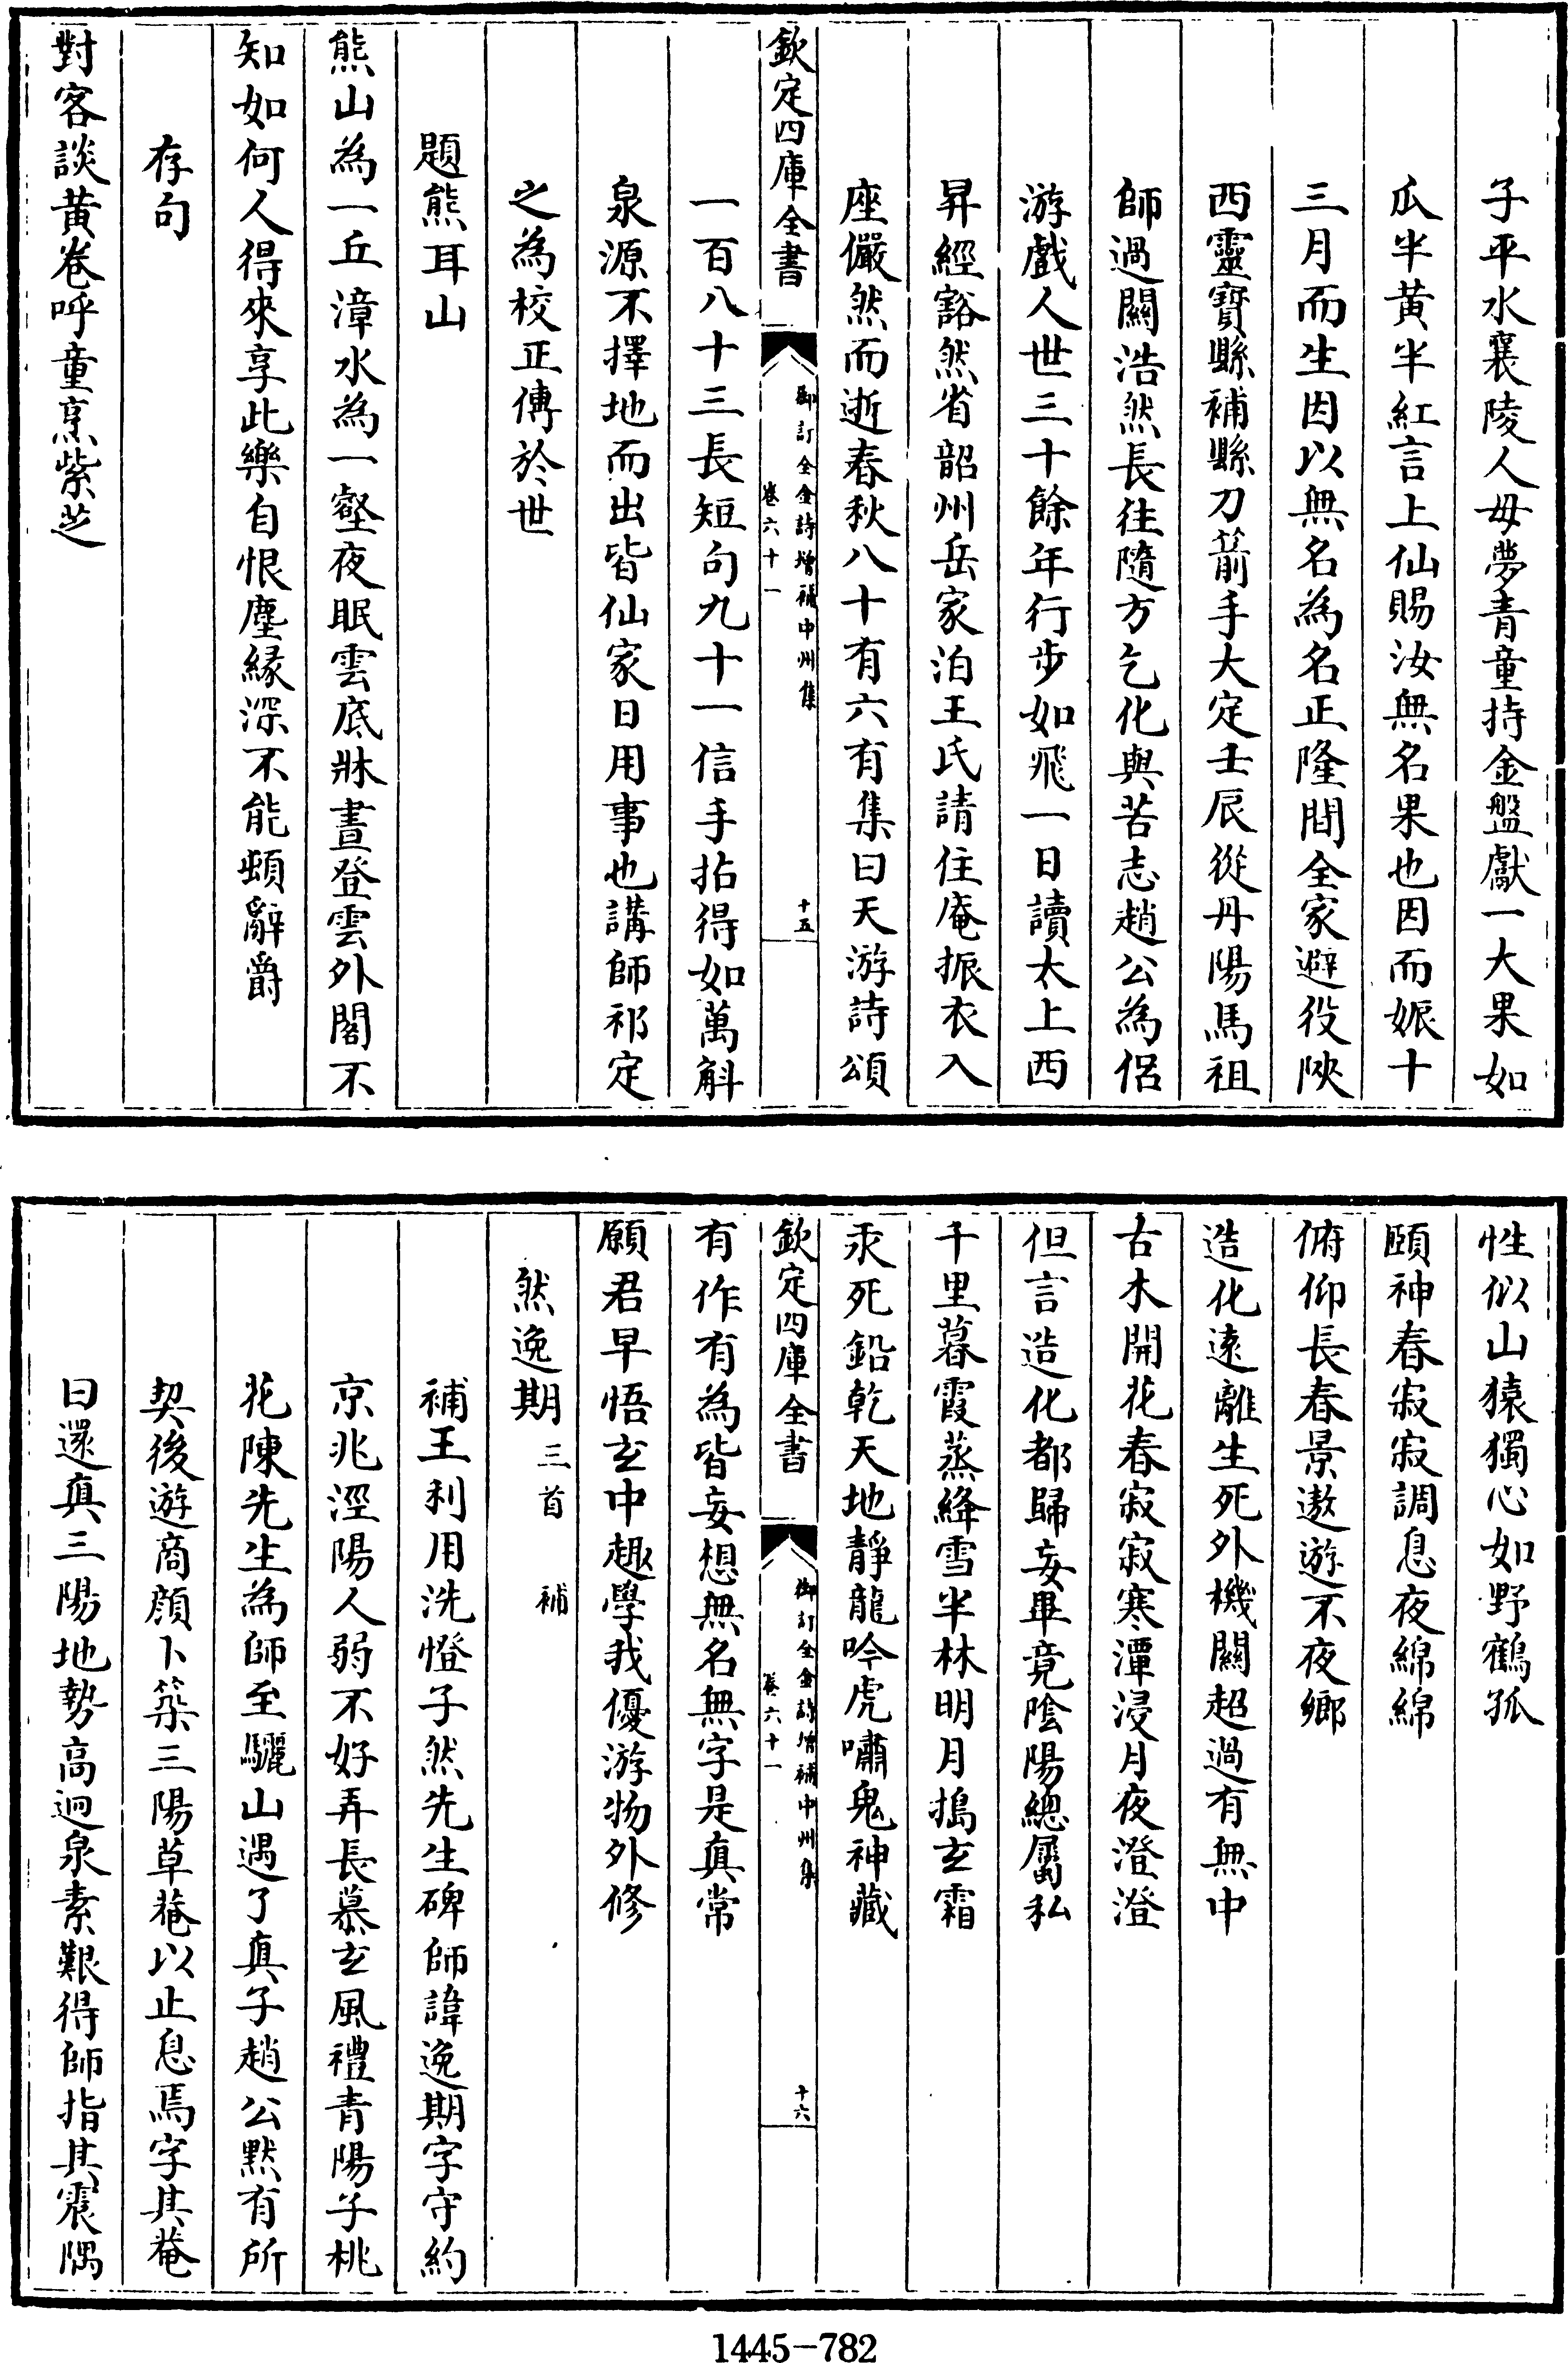 子平水襄陵人母夢青童持金盤獻一大果如
瓜半黃半紅言上仙賜汝無名果也因而娠十
三月而生因以無名為名正隆間全家避役陜
西靈寶縣補縣刀箭手大定壬辰從丹陽馬祖
師過關浩然長往隨方乞化與苦志趙公為侶
游戲人世三十餘年行步如飛一日讀太上西
昇經豁然省韶州岳家泊王氏請住庵振衣入
座儼然而逝春秋八十有六有集曰天游詩頌
欽定四庫全書
御訂全金詩增補中州集
卷六十一
十五
一百八十三長短句九十一信手拈得如萬斛
泉源不擇地而出皆仙家日用事也講師祁定
之為校正傳於世
題熊耳山
熊山為一丘漳水為一壑夜眠雲底牀晝登雲外閣不
知如何人得來享此樂自恨塵緣深不能頓辭爵
存句
對客談黃卷呼童烹紫芝
性似山猿獨心如野鶴孤
頤神春寂寂調息夜綿綿
俯仰長春景遨遊不夜鄉
造化遠離生死外機關超過有無中
古木開花春寂寂寒潭浸月夜澄澄
但言造化都歸妄畢竟陰陽總屬私
千里暮霞蒸絳雪半林明月搗玄霜
汞死鉛乾天地靜龍吟虎嘯鬼神藏
欽定四庫全書
御訂全金詩增補中州集
卷六十一
十六
有作有為皆妄想無名無字是真常
願君早悟玄中趣學我優游物外修
然逸期 三首 補
補王利用洗燈子然先生碑師諱逸期字守約
京兆涇陽人弱不好弄長慕玄風禮青陽子桃
花陳先生為師至驪山遇了真子趙公默有所
契後遊商顏卜築三陽草菴以止息焉字其菴
曰還真三陽地勢高迥泉素艱得師指其震隅
1445-782